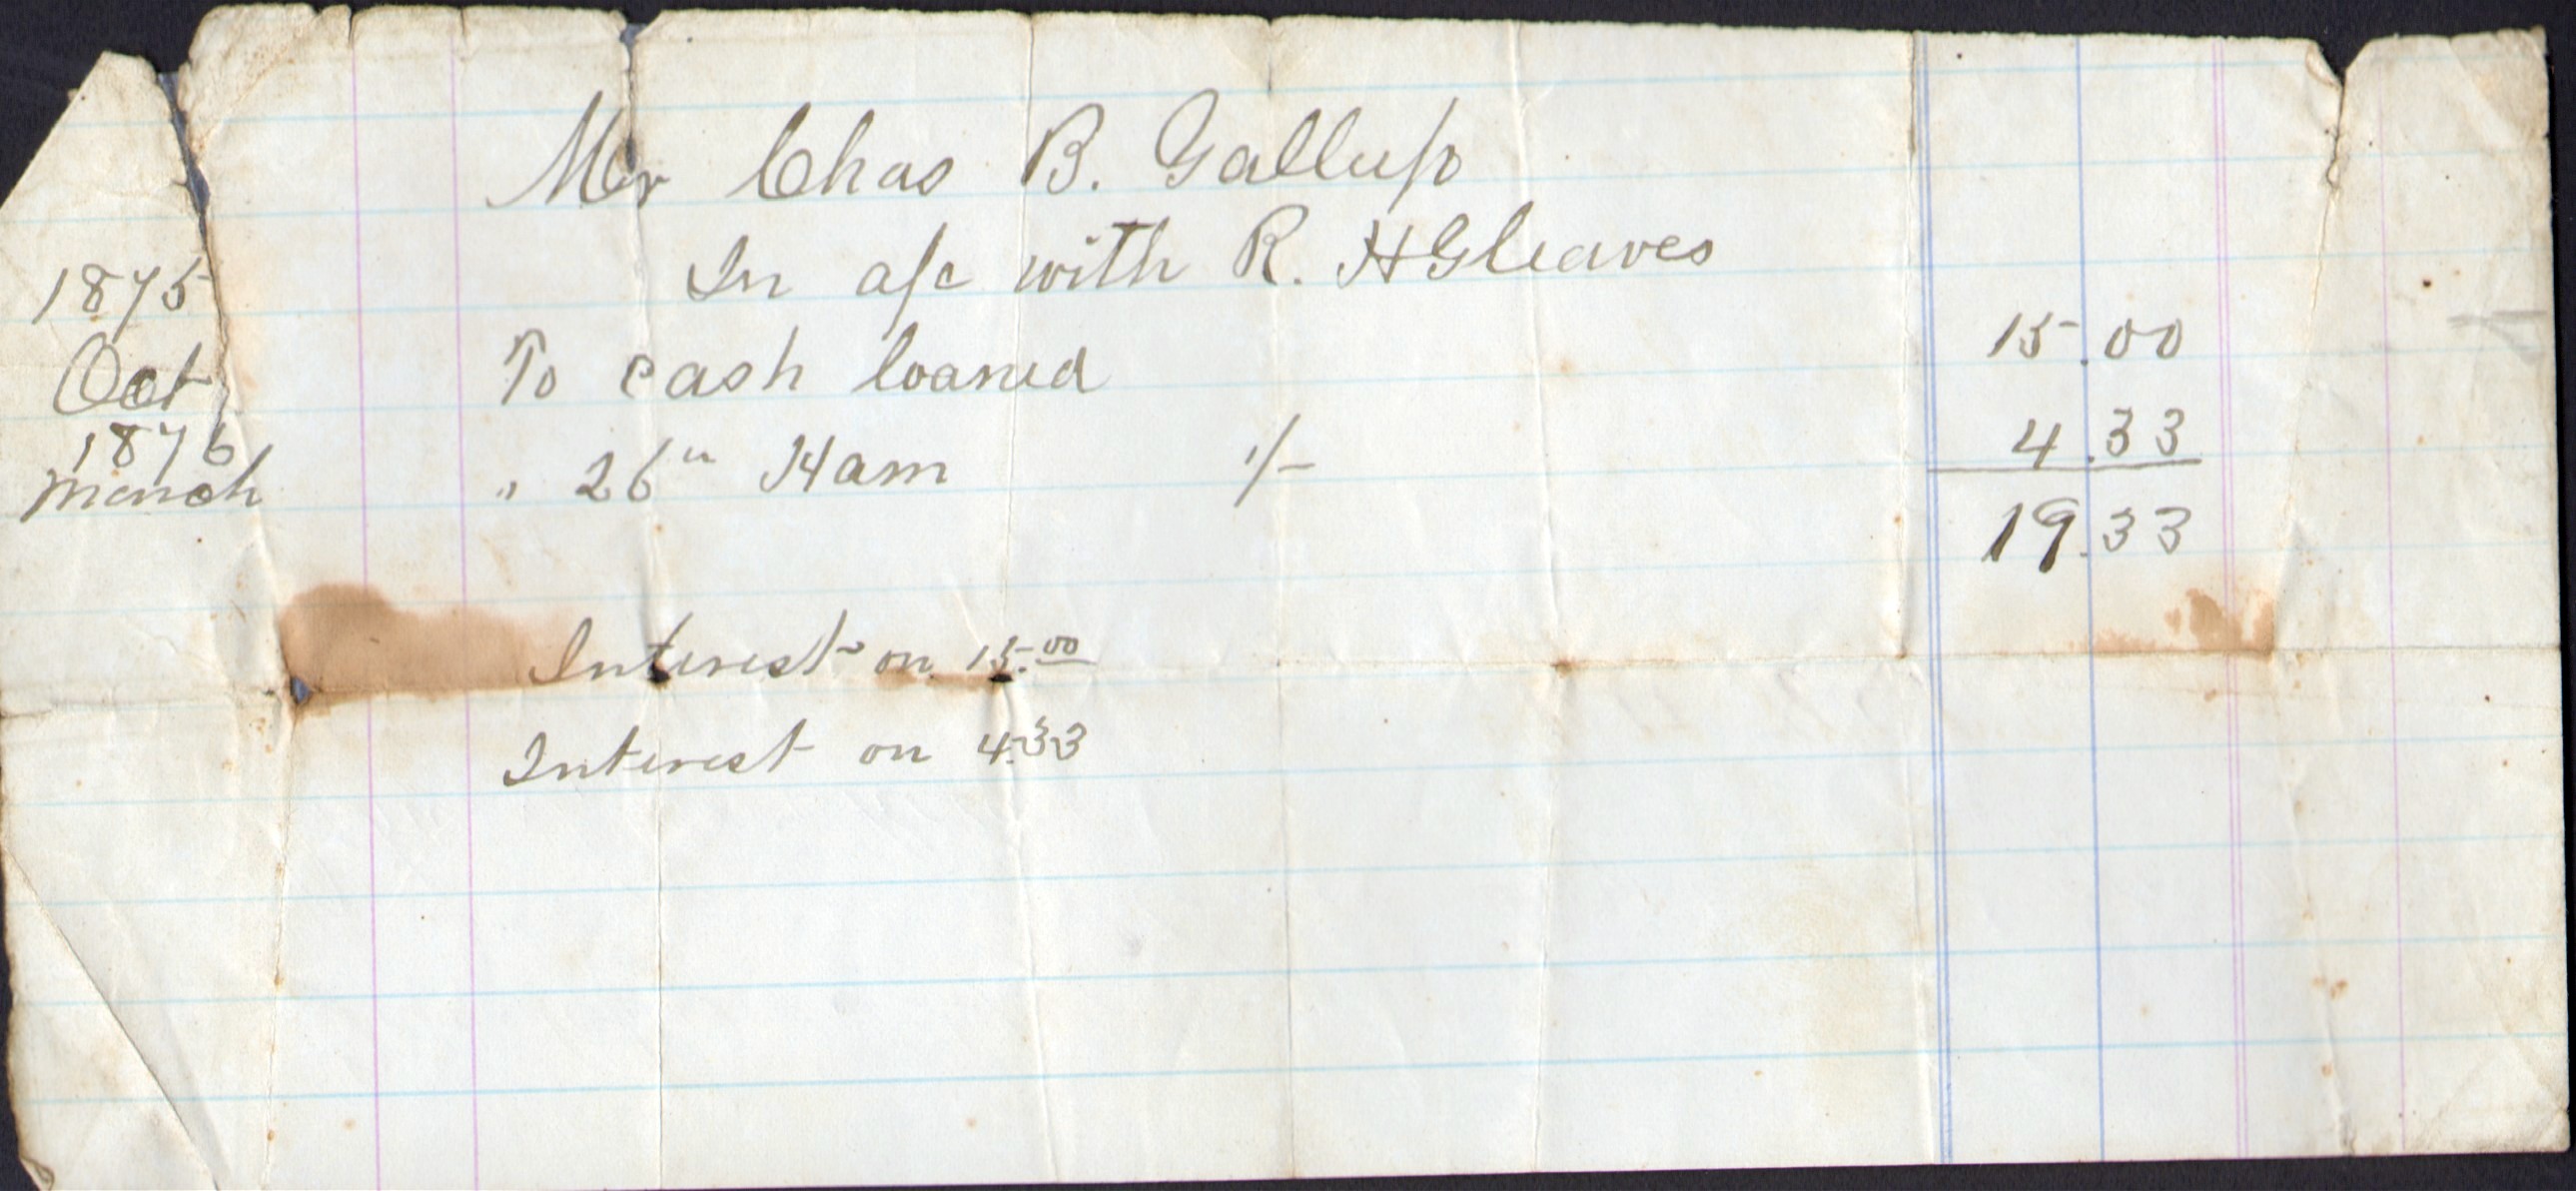 Mr Chas B. Gallup
In a/c with R. H Gleaves
1875
Oct To cash loaned 15.00
1876
March " 26 " Ham 1/- 4.33
19.33
Interest on 15.00
Interest on 4.33